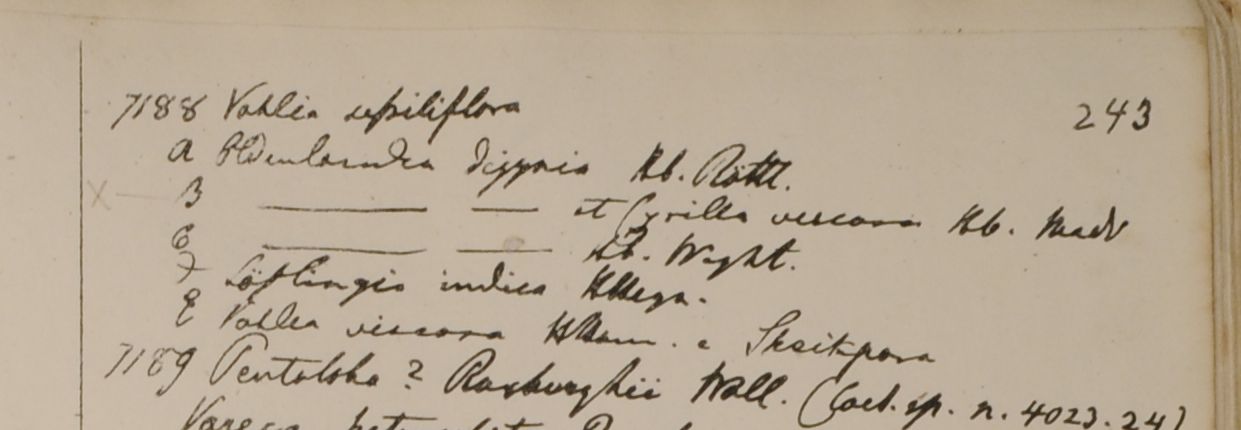 243
7188 Vahlia sessiliflora
A Oldenlandia digynia Hb. Rottl.
B ——— —— et Cyrilla viscosa Hb. Madr
C ——— —— Hb. Wight.
D Löflingia indica HHeyn.
E Vahlia viscosa HHam. e Sheikpora
7189 Pentaloba? Roxburghii Wall. (Cat. sp. n. 4023.24)